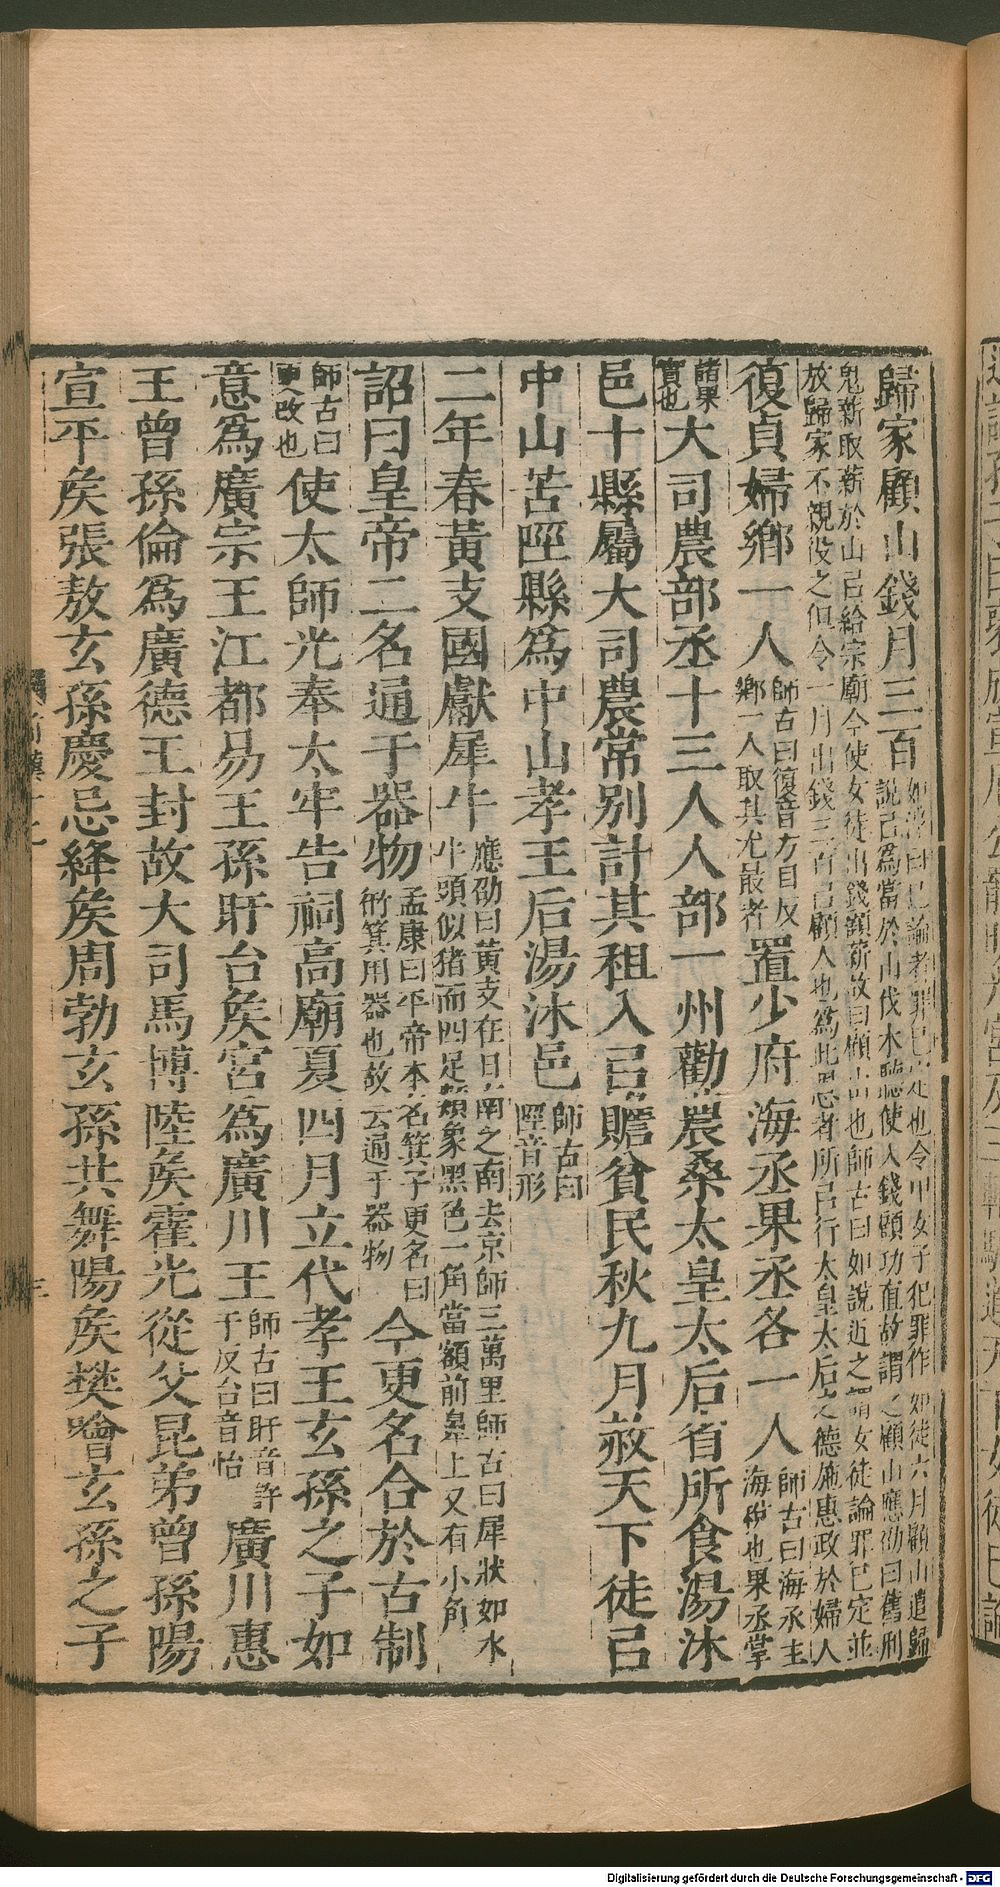 歸家顧山錢月三百如淳曰已論者罪已定也令甲女子犯罪作如徒六月顧山遣歸說㠯為當於山伐木聽使入錢顧功直故謂之顧山應劭曰舊刑
鬼薪取薪於山㠯給宗廟今使女徒出錢顧薪故曰顧山也師古曰如說近之謂女徒論罪已定並放歸家不親役之但令一月出錢三百㠯顧人也為此恩者所㠯行太皇太后之德施惠政於婦人
復貞婦鄉一人師古曰復音方目反鄉一人取其尤最者置少府海丞果丞各一人師古曰海丞主海稅也果丞掌
諸果實也大司農部丞十三人人部一州勸農桑太皇太后省所食湯沐
邑十縣屬大司農常別計其租入㠯贍貧民秋九月赦天下徒㠯
中山苦陘縣為中山孝王后湯沐邑師古曰陘音形
二年春黃支國獻犀牛應劭曰黃支在日南之南去京師三萬里師古曰犀狀如水牛頭似猪而四足類象黑色一角當額前鼻上又有小角
詔曰皇帝二名通于器物孟康曰平帝本名箕子更名曰衎箕用器也故云通于器物今更名合於古制
師古曰更改也使太師光奉太牢告祠高廟夏四月立代孝王玄孫之子如
意為廣宗王江都易王孫盱台矦宮為廣川王師古曰盱音許于反台音怡廣川惠
王曾孫倫為廣德王封故大司馬博陸矦霍光從父昆弟曾孫陽
宣平矦張敖玄孫慶忌絳矦周勃玄孫共舞陽矦樊噲玄孫之子
Digitalisierung gefördert durch die Deutsche Forschungsgemeinschaft - DFG